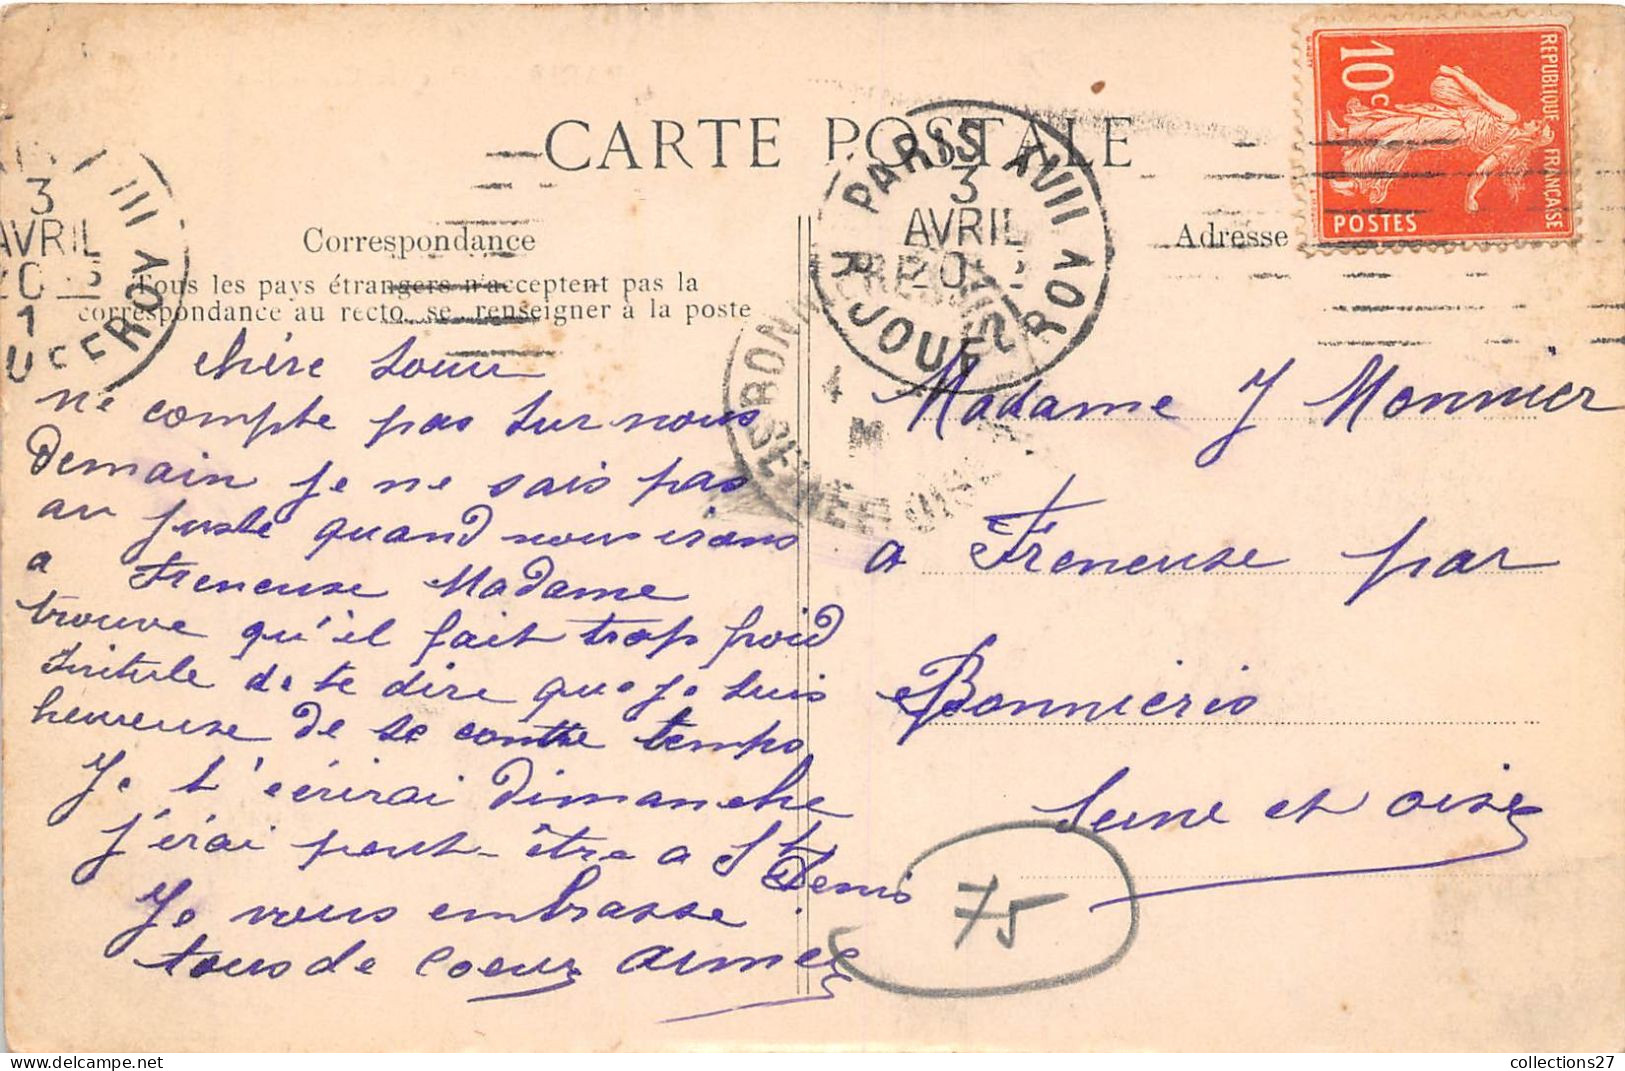 CARTE POSTALE
Correspondance
Tous les pays étrangers n'acceptent pas la
correspondance au recto, se renseigner à la poste
chère Soeur
ne compte pas sur nous
demain je ne sais pas
au juste quand nous irons
a Freneuse Madame
trouve qu'il fait trop froid
inutile de te dire que je suis
heureuse de se contre temps
Je t'écrirai dimanche
j'irai peut-être a St
Denis
Je vous embrasse
tous de coeur Aimée
Adresse
Madame J Monnier
a Freneuse par
Bonnières
Seine et oise
75
REPUBLIQUE FRANÇAISE
10c
POSTES
PARIS XVII
3
AVRIL
R JOUFFROY
3
AVRIL
1
III
BONNIÈRES
4
SEINE-ET-OISE
collections27